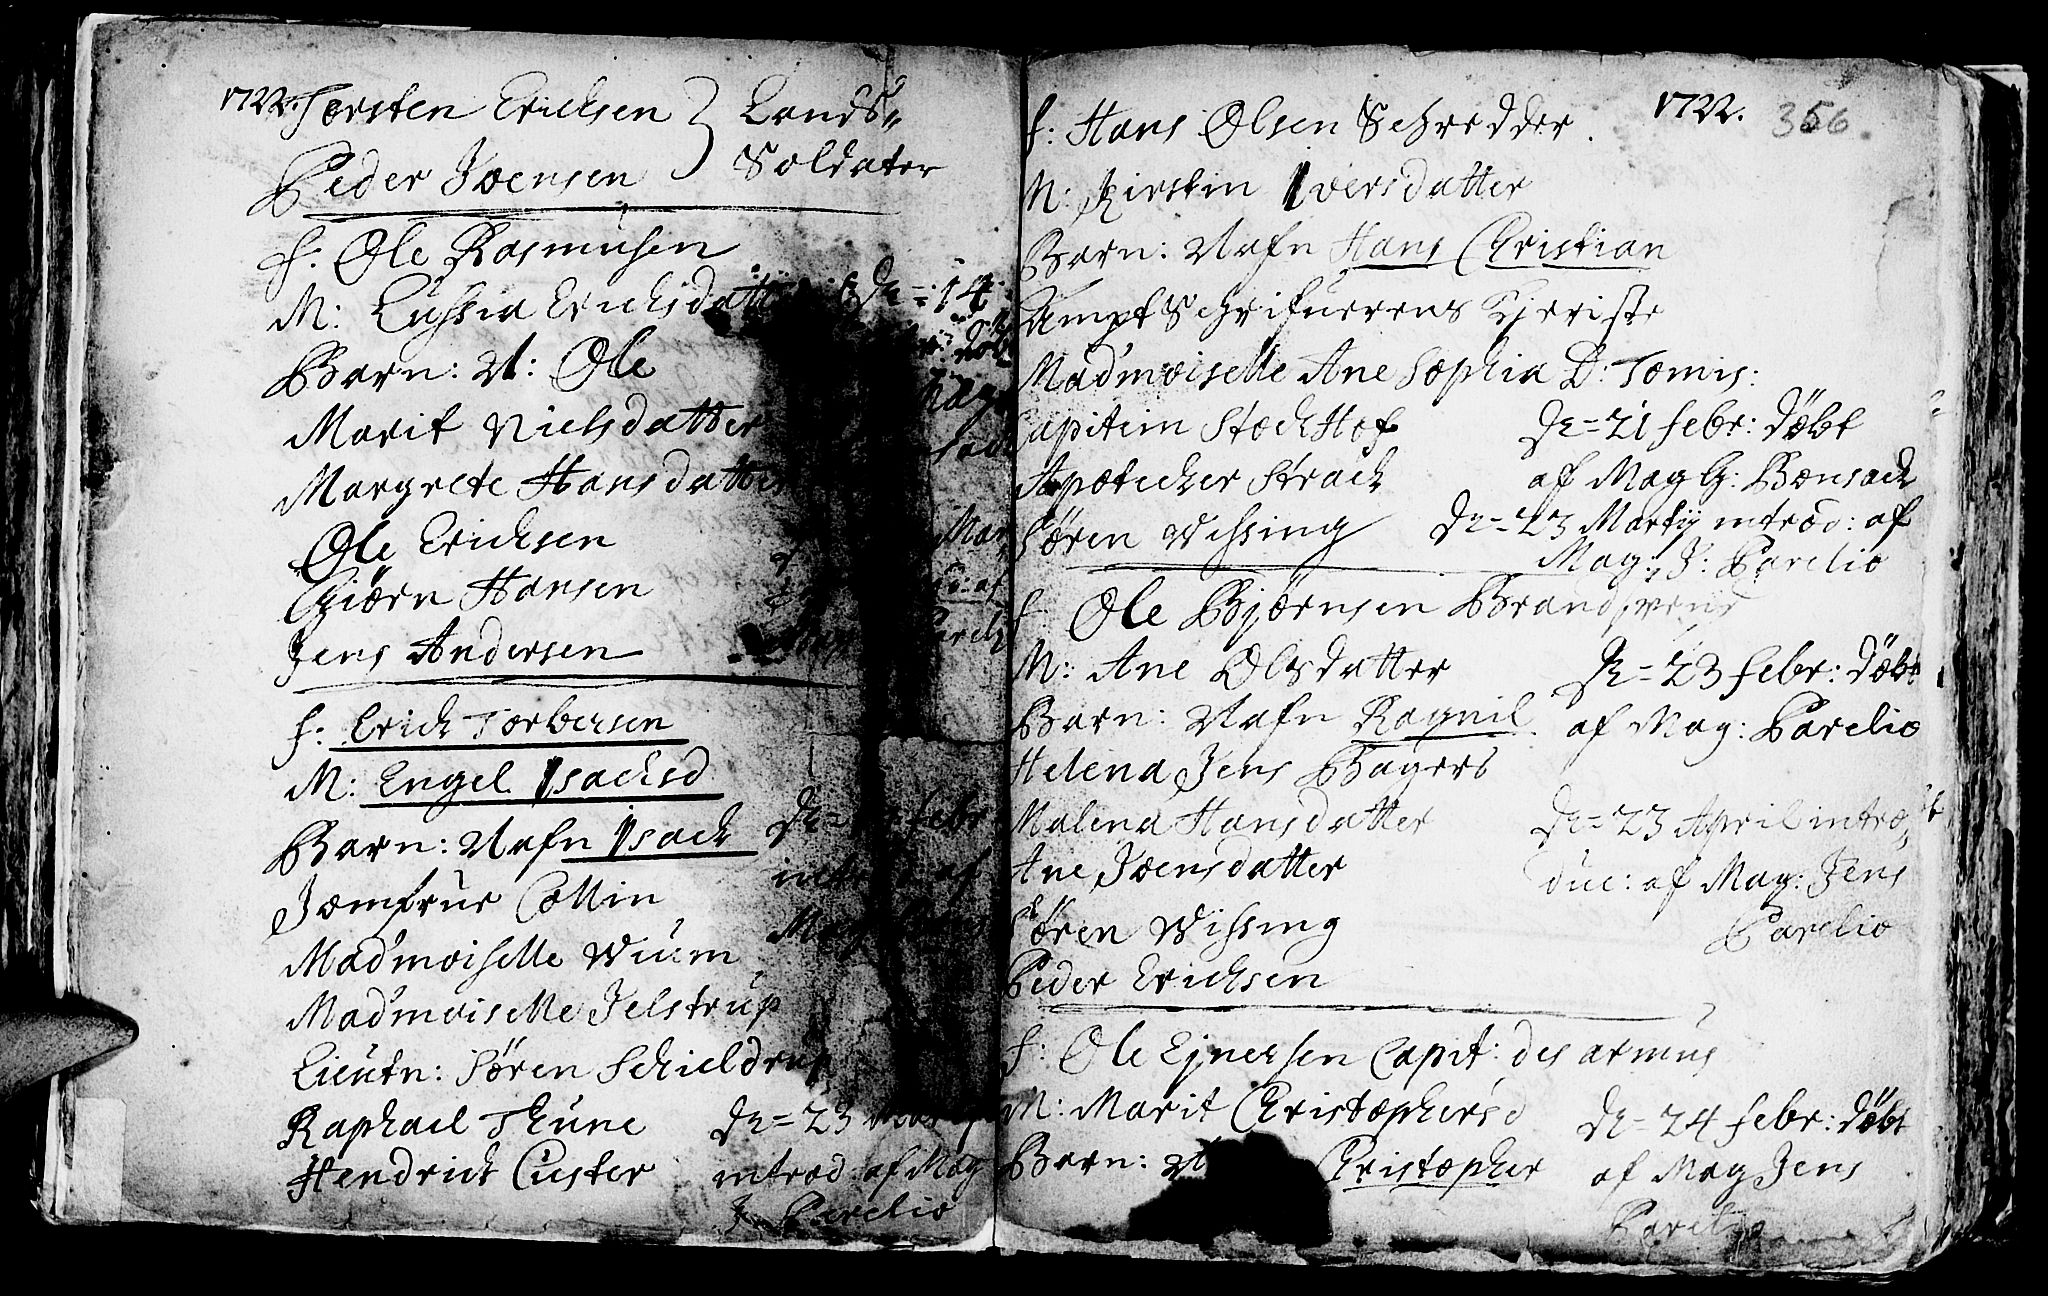 1722. Torsten Erichsen } Lands„
Peder Joensen } Soldater
f: Ole Rasmusen
M: Lussia Erichsdatter d: 14
Barn: N: Ole
Marit Nielsdatter
Margrete Hansdatter
Ole Erichsen
Giørn Hansen
Jens Andersen
f: Erich Torbersen
M: Engel Isachsd
Barn: Nafn Isach
Jomfrue Collin
Mad'moiselle Wium
Mad'moiselle Jelstrup
Lieutn: Søren Schieldrup
Raphael Thune
Hendrich Custer
d= febr
introd af
Mag
d= 23 Martij
introd: af Mag
J. Barelio
1722. 356
f: Hans Olsen Schredder.
M: Kirstin Iversdatter
Barn: Nafn Hans Christian
Ampt Schrifuerens Kjeriste
Mad'moiselle Ane Sophia D: Tomis:
Capitein Stockhof
Apotecher Strach
Søren Wissing
d= 21 febr: døbt
af Mag G: Bonsach
d= 23 Martij introd: af
Mag: J: Barelio
f: Ole Bjørnsen Brandsvend
M: Ane Olsdatter
Barn: Nafn Ragnil
Helena Jens Bagers
Malena Hansdatter
Ane Joensdatter
Søren Wissing
Peder Erichsen
d= 23 febr: døbt
af Mag: Barelio
d= 23 April intro
duc: af Mag: Jens
Barelio
f: Ole Ejnersen Capit: des armus
M: Marit Christophersd
Barn: N Christopher
d= 24 febr: døbt
af Mag Jens
Barelio